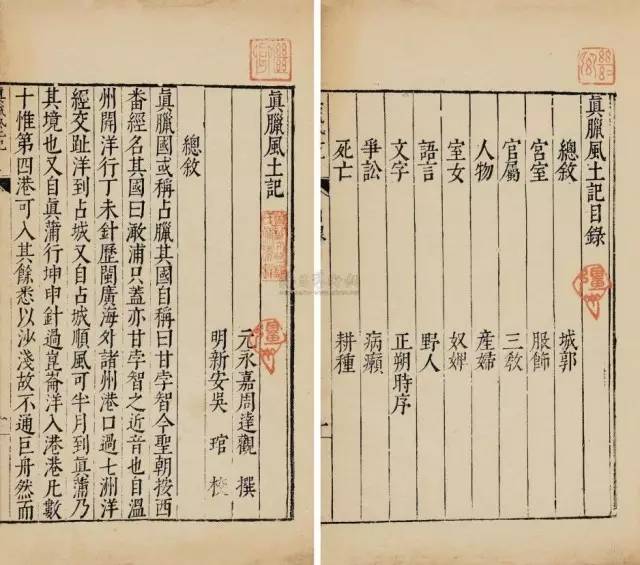 眞臘風土記目錄
總敘 城郭
宮室 服飾
官屬 三教
人物 產婦
室女 奴婢
語言 野人
文字 正朔時序
爭訟 病癩
死亡 耕種
眞臘風土記
元永嘉周達觀 撰
明新安吳 琯 校
總敘
眞臘國或稱占臘其國自稱曰甘孛智今聖朝按西
番經名其國曰澉浦只蓋亦甘孛智之近音也自溫
州開洋行丁未針歷閩廣海外諸州港口過七洲洋
經交趾洋到占城又自占城順風可半月到眞蒲乃
其境也又自眞蒲行坤申針過崑崙洋入港港凡數
十惟第四港可入其餘悉以沙淺故不通巨舟然而